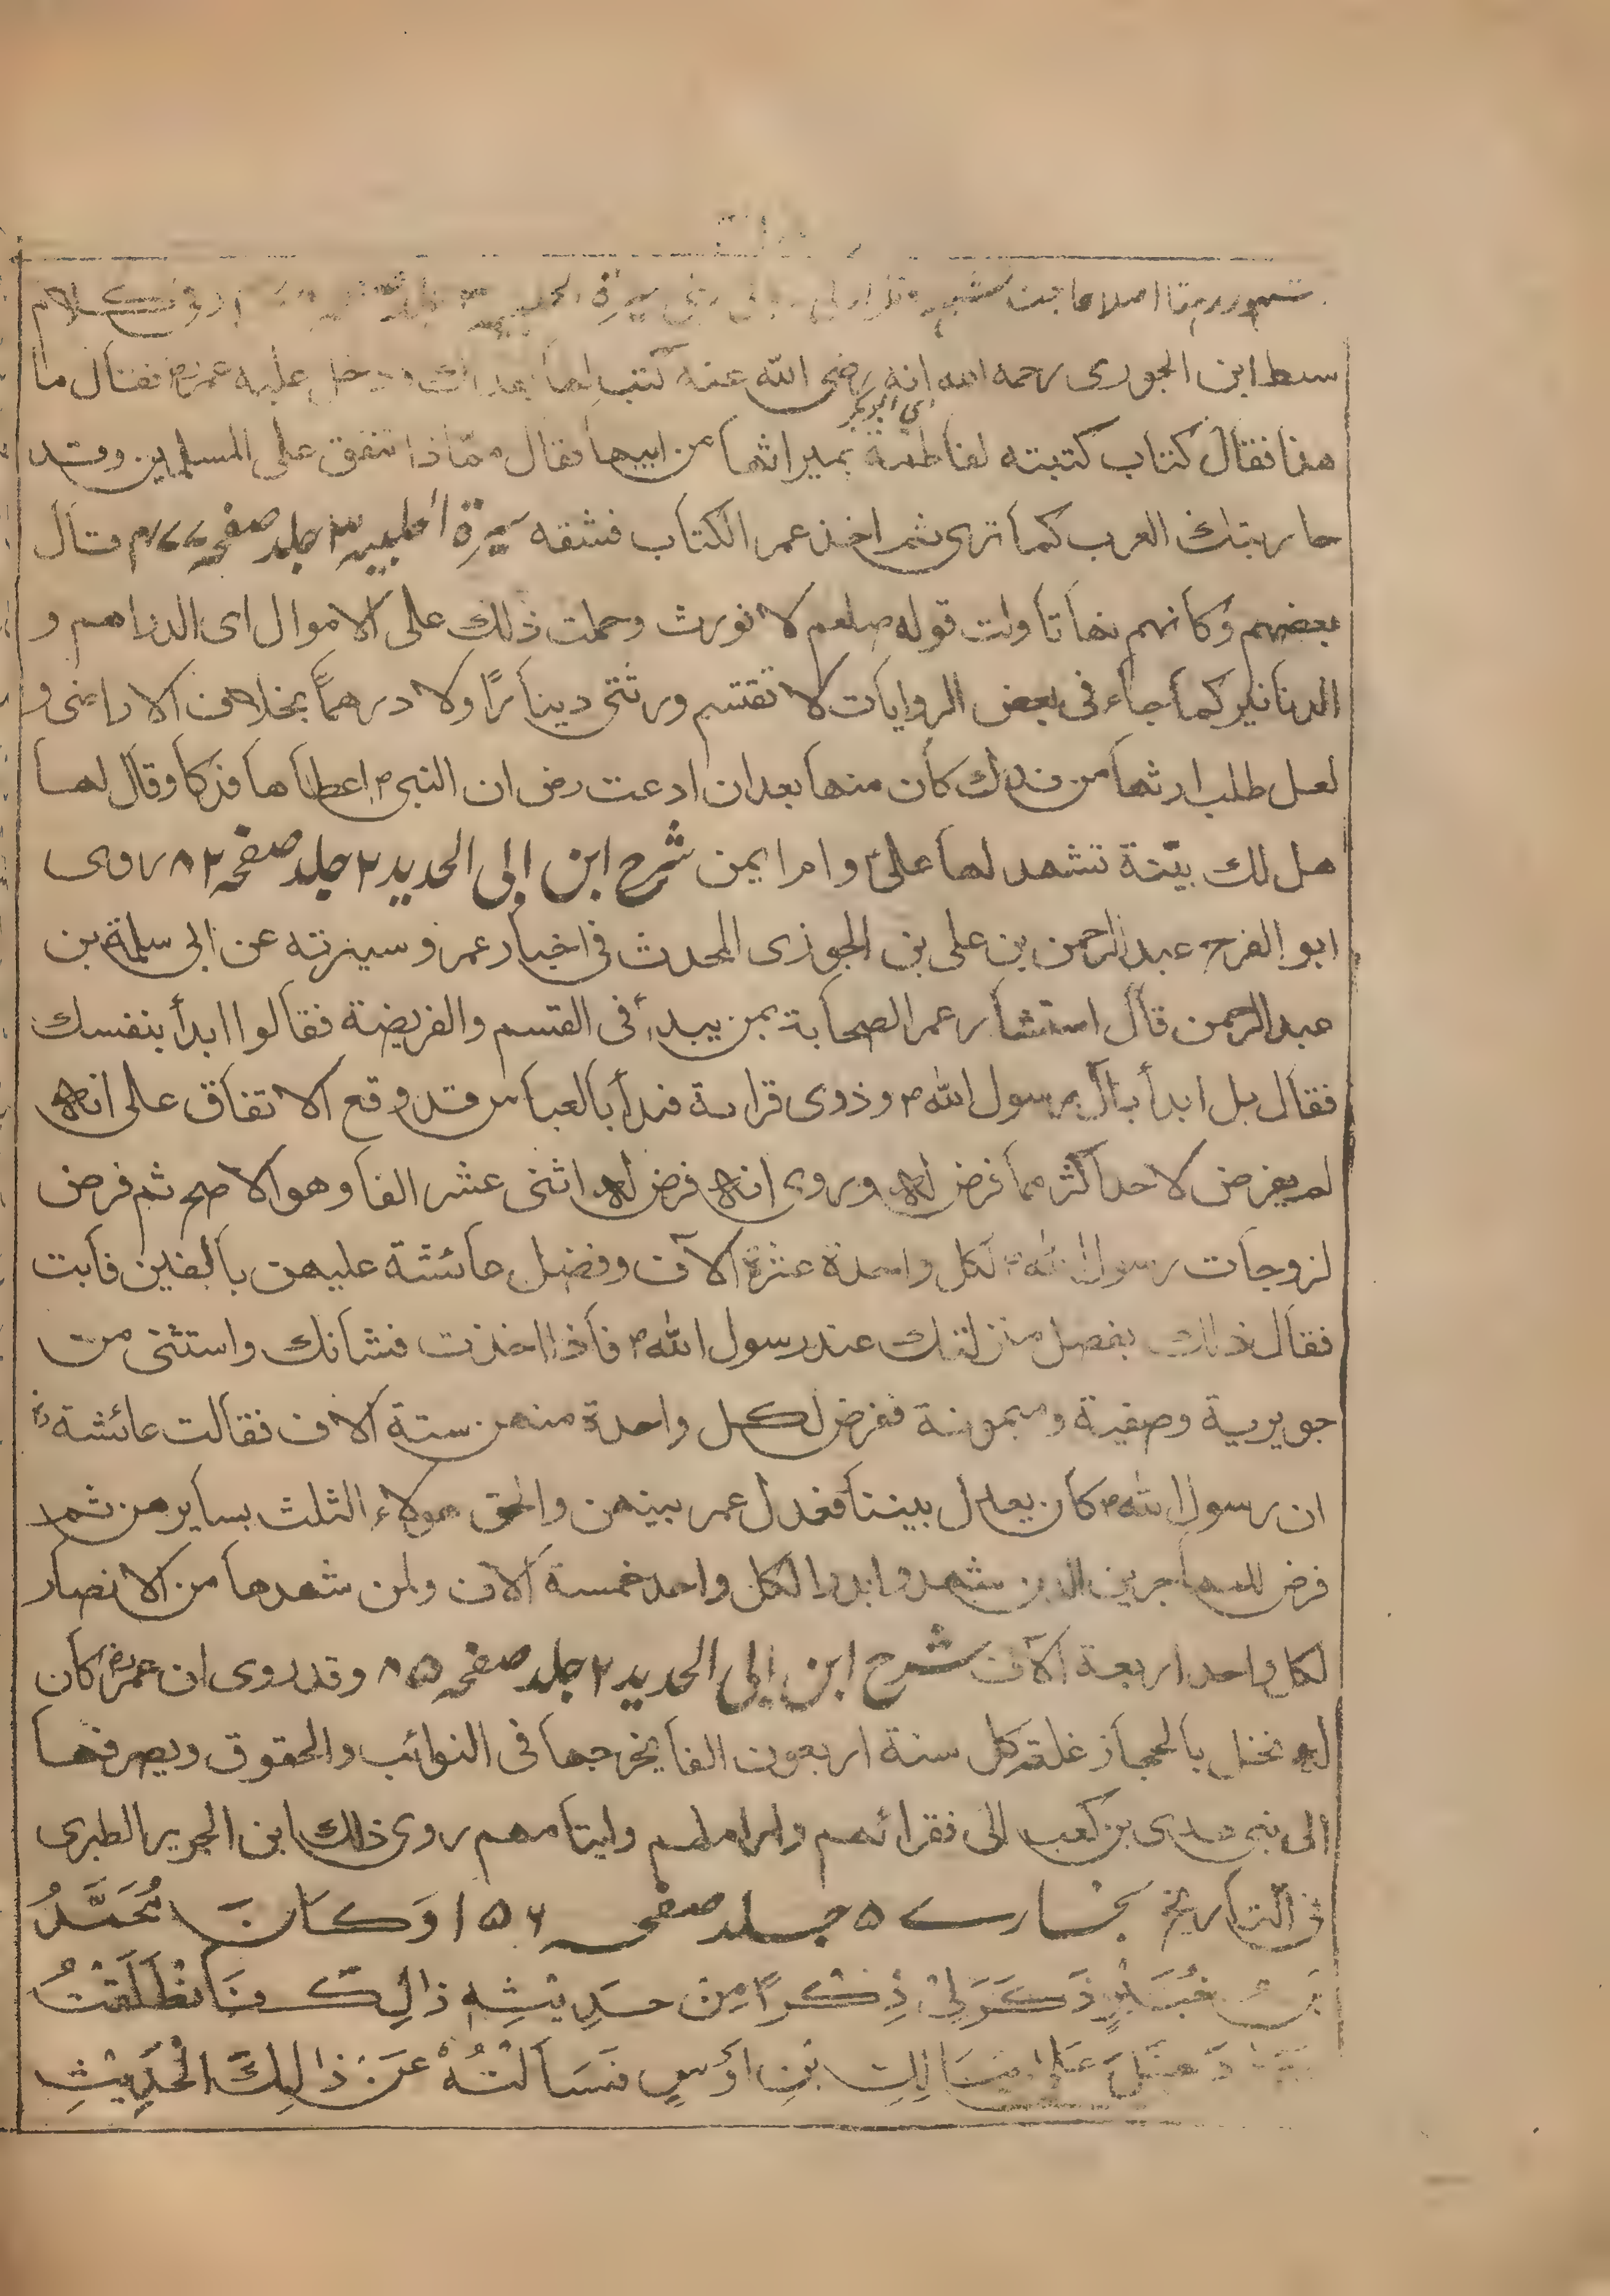 وفي كلام
سبط ابن الجوزى رحمه الله انه رضى الله عنه كتب لها بفدك ودخل عليه عمرؓ فقال ما
اى ابوبكر
هذا فقال كتاب كتبته لفاطمة بميراثها من ابيها فقال مماذا تنفق على المسلمين وقد
حاربتك العرب كما ترى ثم اخذ عمر الكتاب فشقه سيرة الحلبيه ٣ جلد صفحه قال
بعضهم وكانهم تأولت قوله صلعم لا نورث وحملت ذلك على الاموال اى الدراهم و
الدنانير كما جاء فى بعض الروايات لا تقتسم ورثتى دينارًا ولا درهمًا بخلاف الاراضى و
لعل طلب ارثها من فدك كان منها بعد ان ادعت رض ان النبىؐ اعطاها فدكا وقال لها
هل لك بيّنة تشهد لها علىؑ وام ايمن شرح ابن ابى الحديد ٢ جلد صفحه ٨٢ روى
ابو الفرج عبد الرحمن بن على بن الجوزى المحدث فى اخبار عمر وسيرته عن ابى سلمة بن
عبد الرحمن قال استشار عمر الصحابة بمن يبدأ فى القسم والفريضة فقالوا ابدأ بنفسك
فقال بل ابدأ بآل رسول اللهؐ وذوى قرابة فبدأ بالعباس قد وقع الاتفاق على انه
لم يفرض لاحد اكثر مما فرض له وروى انه فرض له اثنى عشر الفا وهو الاصح ثم فرض
لزوجات رسول اللهؐ لكل واحدة عشرة آلاف وفضل عائشة عليهن بالفين فابت
فقال ذلك بفضل منزلتك عند رسول اللهؐ فاذا اخذت فشانك واستثنى من
جويرية وصفية وميمونة ففرض لكل واحدة منهن ستة آلاف فقالت عائشةؓ
ان رسول اللهؐ كان يعدل بيننا فعدل عمر بينهن والحق هولاء الثلث بسايرهن ثم
فرض للمهاجرين الذين شهدوا بدرا لكل واحد خمسة آلاف ولمن شهدها من الانصار
لكل واحد اربعة آلاف شرح ابن ابى الحديد ٢ جلد صفحه ٨٥ وقد روى ان عمرؓ كان
له نخل بالحجاز غلته كل سنة اربعون الفا يخرجها فى النوائب والحقوق ويصرفها
الى بنى عدى بن كعب الى فقرائهم واراملهم وايتامهم روى ذلك ابن الجرير الطبرى
فى التاريخ بخارے ٥ جلد صفحه ١٥٦ وَكَانَ مُحَمَّدُ
بن جُبَيْرٍ ذَكَرَ لِىْ ذِكْرًا مِنْ حَدِيْثِهِ ذالِكَ فَانْطَلَقْتُ
عَلىٰ مَالِكِ بْنِ اَوْسٍ فَسَاَلْتُهُ عَنْ ذالِكَ الْحَدِيْثِ